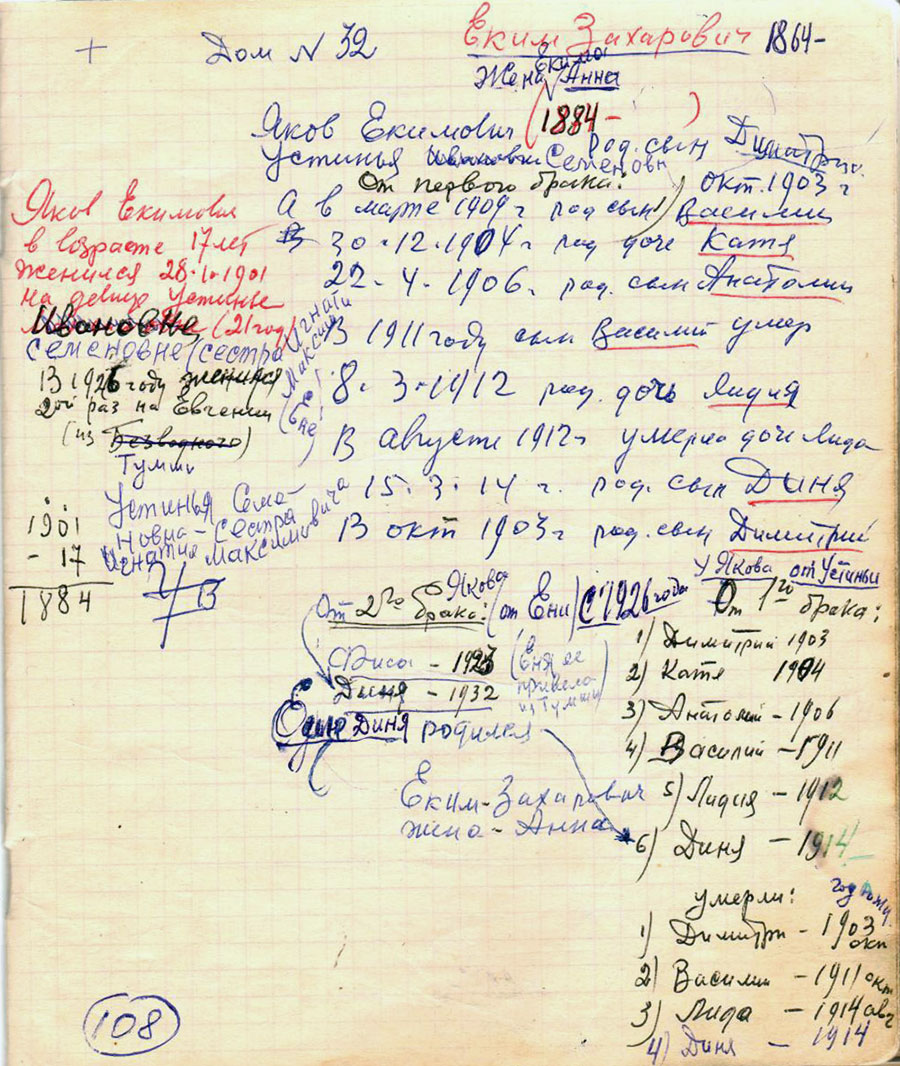 + Дом N 32
Еким Захарович 1864-
Жена Екима Анна
Яков Екимович (1884- )
Устинья Ивановн Семеновн
род. сын Димитрий
окт. 1903 г
От первого брака:
А в марте 1909 г род сын Василий
В 30.12.1904 г род доче Катя
22-4-1906 г. род. сын Анатолий
В 1911 году сын Василий умер
8.3.1912 род. дочь Лидия
В августе 1912 г умерла доче Лида
15.3.14 г. род. сын Диня
В окт 1903 г род. сын Димитрий
Яков Екимович
в возрасте 17 лет
женился 28.1.1901
на девице Устинье
Ивановне (21 год)
Семеновне (сестра Игнати Максим
В 1926 году женился
2ой раз на Евгении
(из Безводного)
Тумши
Устинья Семе-
новна - сестра
Игнатия Максимовича
1901
- 17
1884
От 2го брака: Якова (от Ени) С 1926 года
Фиса - 1927
Диня - 1932
(Еня ее привела из Тумши)
Один Диня родился
Еким-Захарович
жена - Анна
У Якова от Устиньи
От 1го брака:
1) Димитрий 1903
2) Катя 1904
3) Анатолий - 1906
4) Василий - 1911
5) Лидия - 1912
6) Диня - 1914
умерли:
1) Димитри - 1903 окт
2) Василий - 1911 окт
3) Лида - 1914 авг
4) Диня - 1914
108